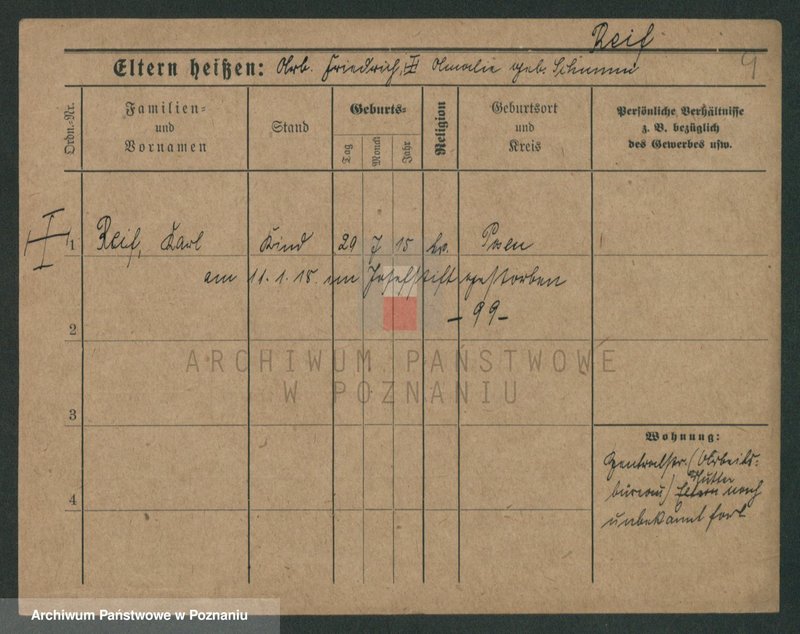 Reif
9
Eltern heißen: Arb. Friedrich, Amalie geb. Schumm
Ordn.-Nr.
Familien- und Vornamen
Stand
Geburts-
Tag
Monat
Jahr
Religion
Geburtsort und Kreis
Persönliche Verhältnisse
z. B. bezüglich
des Gewerbes usw.
1 Reif, Karl Kind 29 7 15 ev. Posen
am 11.1.18 im Josefstift gestorben
2 -99-
ARCHIWUM PAŃSTWOWE
W POZNANIU
3
Wohnung:
Zentralstr. (Arbeits-
büreau) Mutter
Eltern nach
unbekannt fort
4
Archiwum Państwowe w Poznaniu